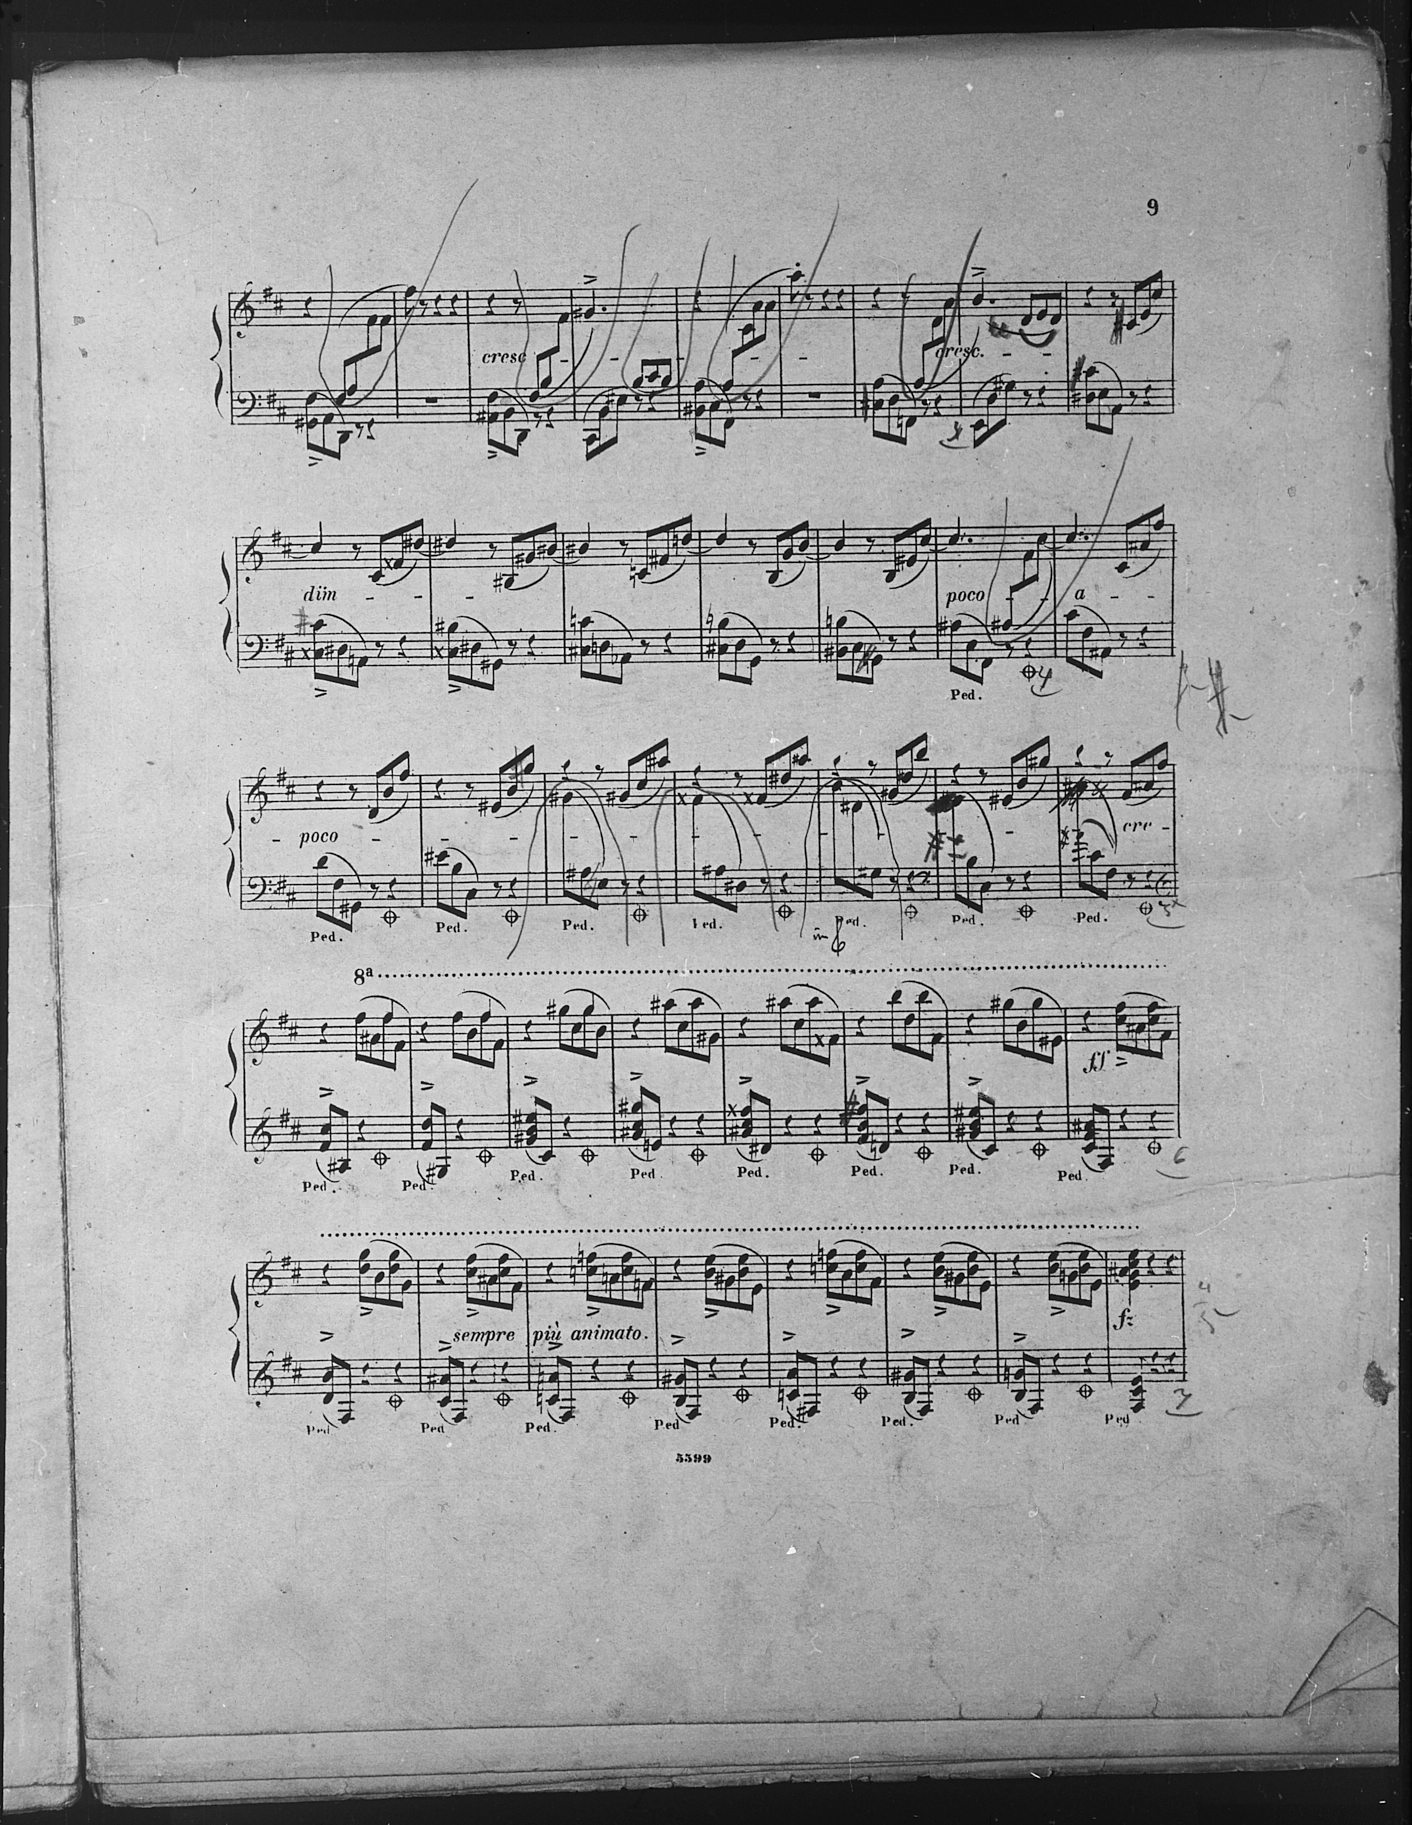 9
cresc - - - - - cresc. - -
dim - - - - - - - - poco - - a - -
Ped.
- poco - - - - - - - - - cre -
Ped. Ped. Ped. Ped. Ped. Ped. Ped.
8ª
ff
Ped. Ped. Ped. Ped. Ped. Ped. Ped. Ped.
sempre più animato.
fz
Ped Ped Ped. Ped Ped. Ped. Ped Ped
5599